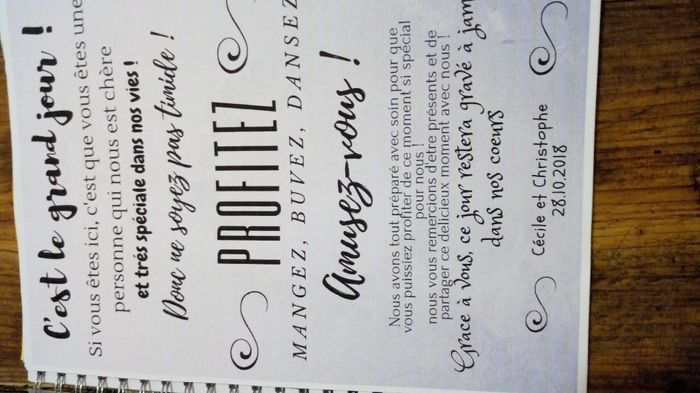 C'est le grand jour !
Si vous êtes ici, c'est que vous êtes une
personne qui nous est chère
et trés spéciale dans nos vies !
Donc ne soyez pas timide !
PROFITEZ
MANGEZ, BUVEZ, DANSEZ
Amusez-vous !
Nous avons tout préparé avec soin pour que
vous puissiez profiter de ce moment si spécial
pour nous !
nous vous remercions d'etre présents et de
partager ce délicieux moment avec nous !
Grace à vous, ce jour restera gravé à jam
dans nos coeurs
Cécile et Christophe
28.10.2018